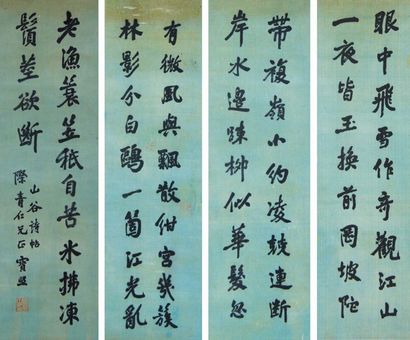 眼中飛雪作奇觀江山
一夜皆玉換前岡坡陀
帶複嶺小約凌兢連斷
岸水邊疎柳似華髮忽
有微風與飄散紺宮幾簇
林影分白鷗一箇江光亂
老漁簑笠秖自苦氷拂凍
鬚莖欲斷
山谷詩帖
際青仁兄正 寶熙